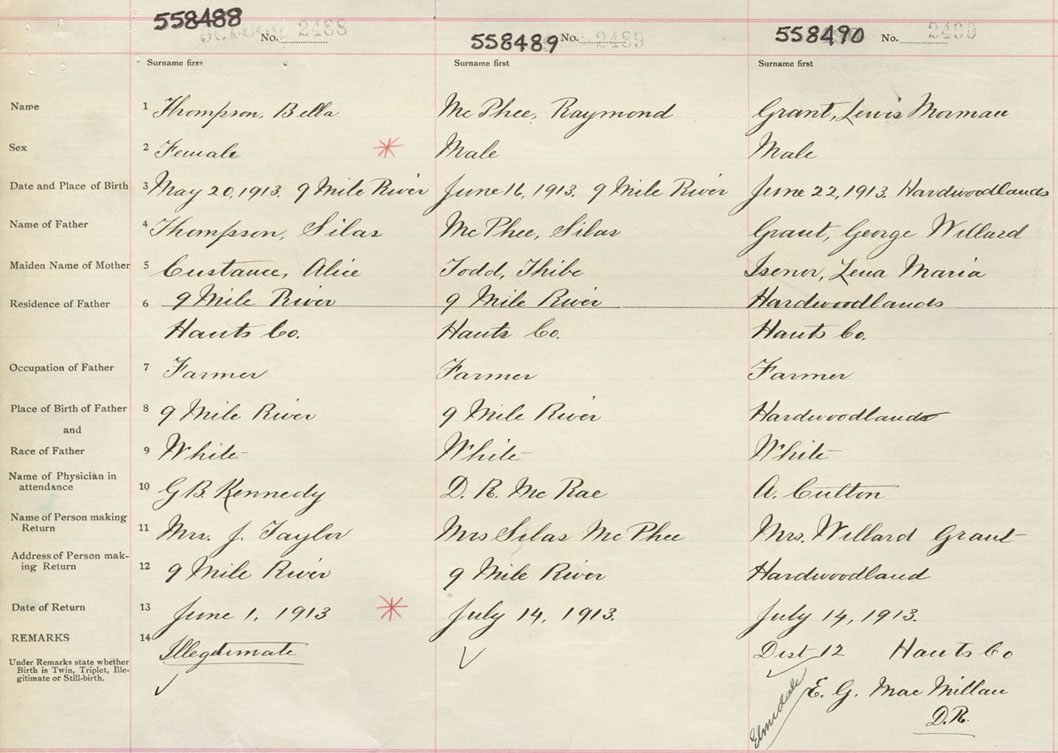 558488 No. 2488
558489 No. 2489
558490 No. 2490
Surname first Surname first Surname first
Name 1 Thompson, Bella Mc Phee, Raymond Grant, Lewis Norman
Sex 2 Female Male Male
Date and Place of Birth 3 May 20, 1913. 9 Mile River June 16, 1913. 9 Mile River June 22, 1913. Hardwoodlands
Name of Father 4 Thompson, Silas Mc Phee, Silas Grant, George Willard
Maiden Name of Mother 5 Custance, Alice Todd, Thibe Isenor, Lena Maria
Residence of Father 6 9 Mile River 9 Mile River Hardwoodlands
Hants Co. Hants Co. Hants Co.
Occupation of Father 7 Farmer Farmer Farmer
Place of Birth of Father 8 9 Mile River 9 Mile River Hardwoodlands
and
Race of Father 9 White White White
Name of Physician in
attendance 10 G.B. Kennedy D. R. Mc Rae A. Culton
Name of Person making
Return 11 Mrs. J. Taylor Mrs Silas Mc Phee Mrs. Willard Grant
Address of Person mak-
ing Return 12 9 Mile River 9 Mile River Hardwoodland
Date of Return 13 June 1, 1913 July 14, 1913. July 14, 1913.
REMARKS 14 Illegitimate Dist 12 Hants Co
Under Remarks state whether
Birth is Twin, Triplet, Ille-
gitimate or Still-birth.
Elmsdale E. G. Mac Millan
D.R.